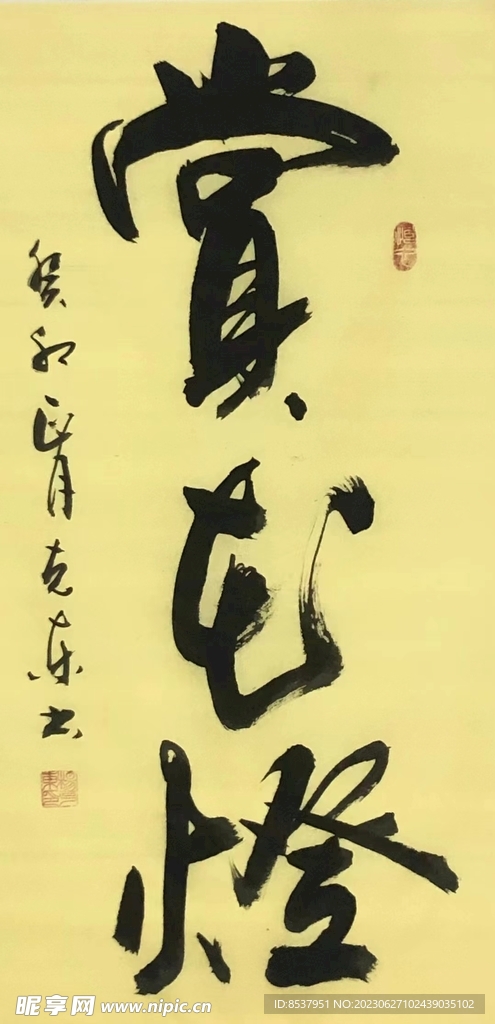 賞花燈
癸卯正月克东书
昵享网 www.nipic.cn
ID:8537951 NO:20230627102439035102